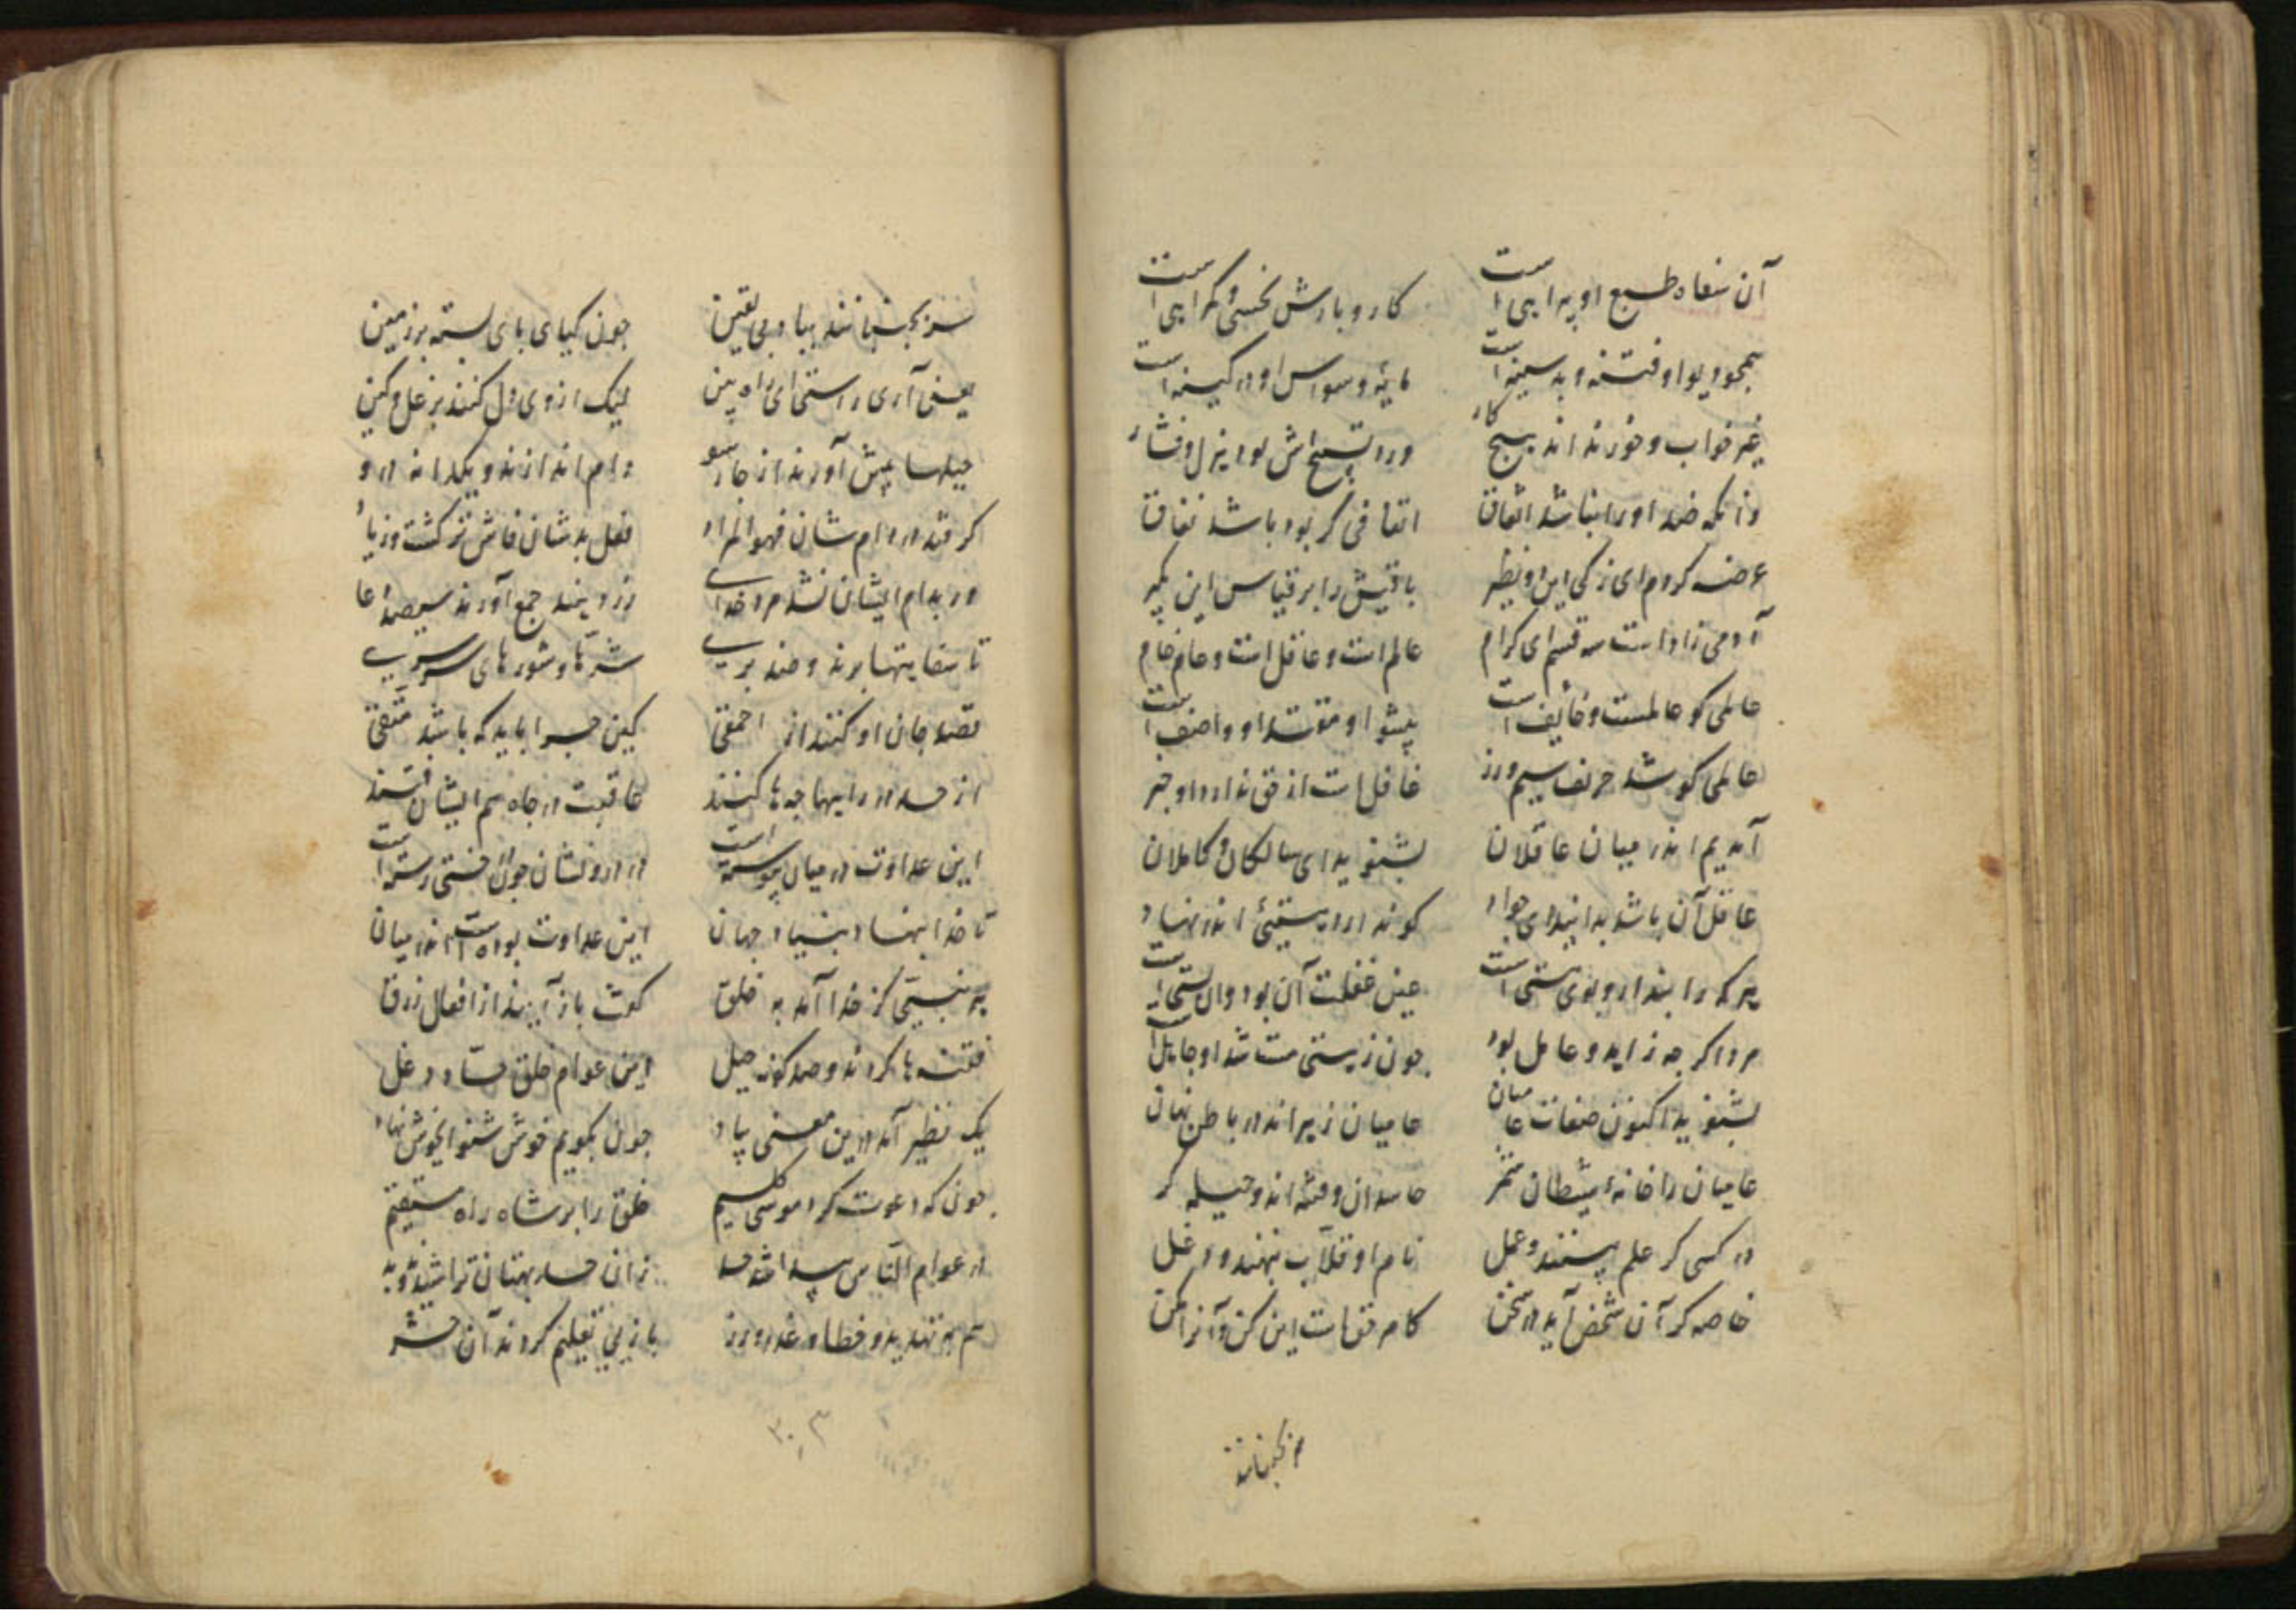 آن سفاه طبع او پیدایی است کار و بارش نخسی و کرایی است
همچو دیو او فتنه و بد سینه است مایه وسواس او در کینه است
غیر خواب و خور نداند هیچ کار ورد تسبیحش بود هزل و فشار
زانکه ضد او را نباشد اتفاق اتفاقی کر بود باشد نفاق
عرضه کردم ای زکی این دو نظیر باقیش را بر قیاس این بکیر
آدمی زاد است سه قسم ای کرام عالم است و عاقل است و عام خام
عالمی کو عالمست و خایف است پیشوا و مقتدا و واصف است
عالمی کو شد حریف سیم و زر غافل است از حق ندارد او خبر
آمدیم اندر میان عاقلان بشنوید ای سالکان و کاملان
عاقل آن باشد بدانید ای جواد کو ندارد هستیی اندر نهاد
هر که را پندار و بوی هستی است عین غفلت آن بود وان پستی است
مرد اکر چه زاهد و عامل بود چون ز هستی مست شد او جاهل است
بشنوید اکنون صفات عامیان عامیان زیراند در باطن نهان
عامیان را خانه شیطان شمر حاسدان و فتنه اند و حیله کر
در کسی کر علم بینند و عمل نام او قلاب بنهند و دغل
خاصه کر آن شخص آید در سخن کامر حق است این کن و آنرا مکن
سر بجنبانند
سر بجنبانند بیاد بی یقین چون کیای پای بسته بر زمین
یعنی آری راستی ای راه بین لیک از وی دل کنند پر غل و کین
حیلها پیش آورند از چارسو دام اندازند و یکدانه درو
کر فتد در دام شان فهو المراد فعل بد شان فاش تر کشت و زیاد
ور بدام ایشان نشد مرد خدای رزد بنمد جمع آورند سیصد دعا
تا سفایتها برند و ضد بری شرها و شورهای سرسری
قصد جان او کنند از احمقی کین چرا باید که باشد متقی
از حسد در راهها چه ها کنند عاقبت در چاه هم ایشان فتند
این عداوت در میان پیوسته است در درونشان چون درختی رسته است
تا خدا بنهاد بنیاد جهان این عداوت بوده است اندر میان
هر نبیی کز خدا آمد به خلق کوت باز آیید از افعال زرق
فتنه ها کردند و صد کونه حیل این عوام خلق حساد دغل
یک نظیر آمد درین معنی بیاد چون بکویم خوش شنو ای خوش نهاد
چون که دعوت کرد موسی کلیم خلق را بر شاه راه مستقیم
در عوام الناس پیدا شد حسد زان حسد بهتان تراشیدند و بد
هم بر تهدید و خطا و غدر و زر با زنی تعلیم کردند آن حشر
۳۰۳